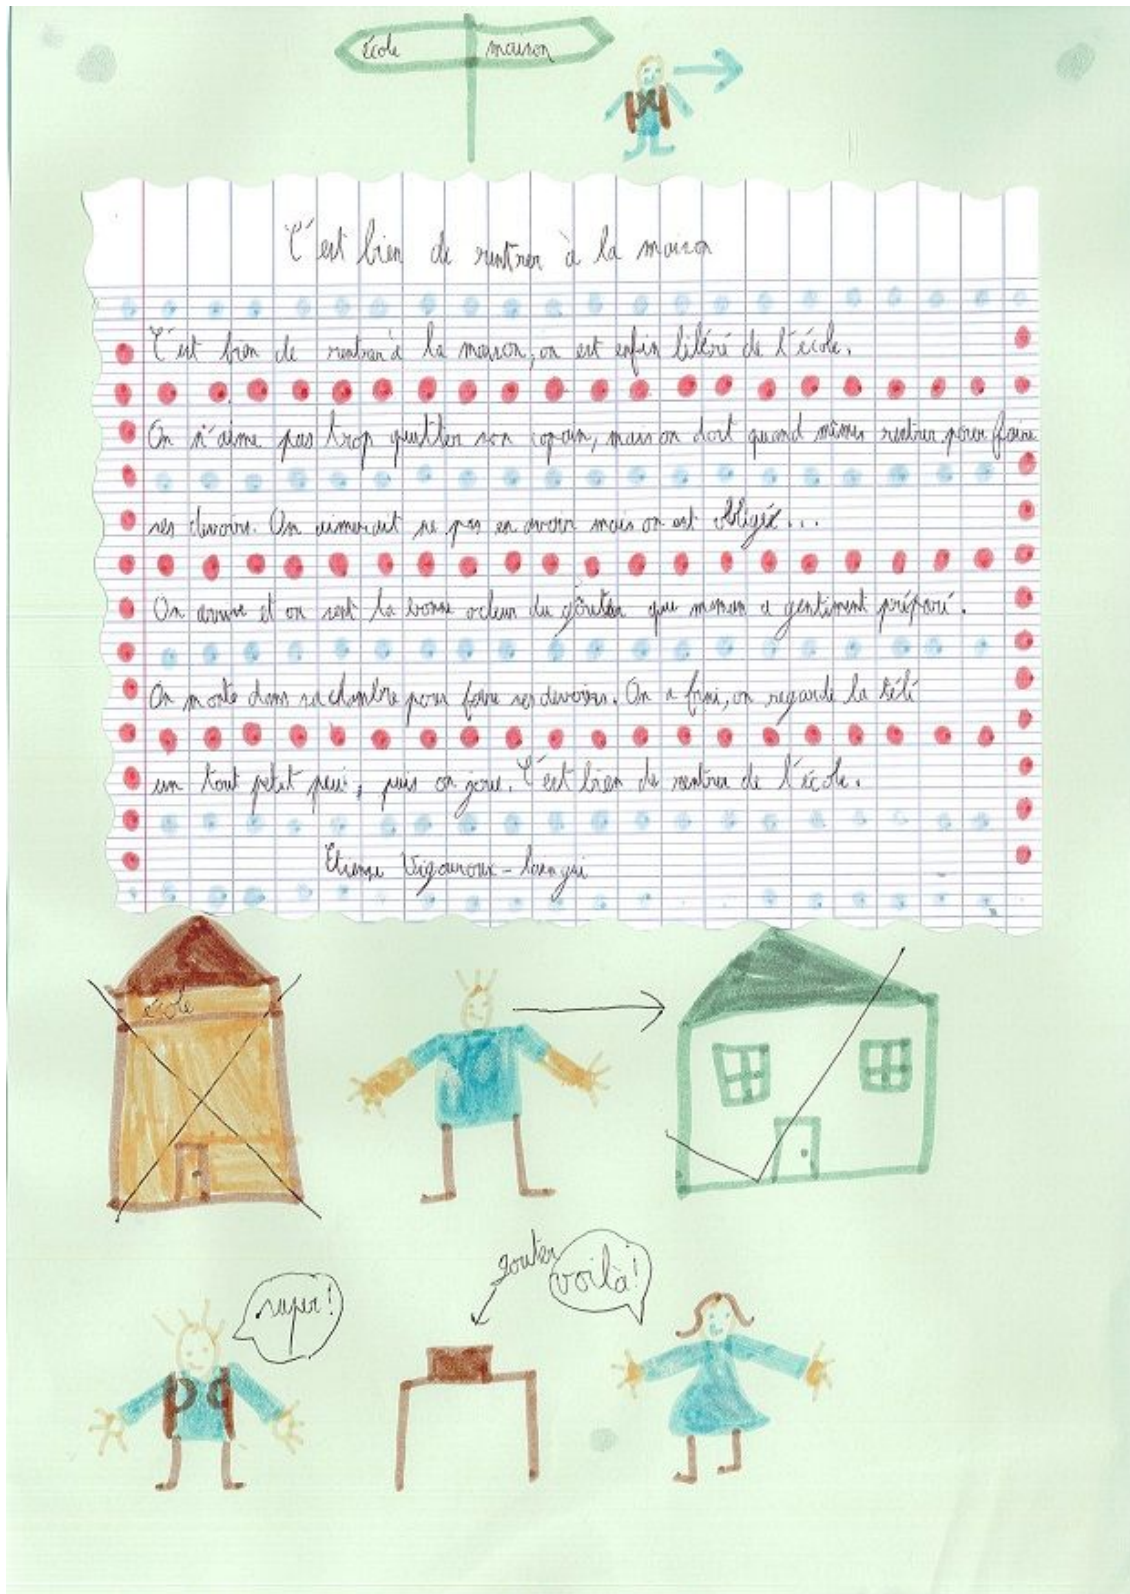 école maison
C'est bien de rentrer à la maison
C'est bien de rentrer à la maison, on est enfin libéré de l'école.
On n'aime pas trop quitter son copain, mais on doit quand mêmes rentrer pour faire
ses devoirs. On aimerait ne pas en avoir mais on est obligé...
On arrive et on sent la bonne odeur du goûter que maman a gentiment préparé.
On monte dans sa chambre pour faire ses devoirs. On a fini, on regarde la télé
un tout petit peu, puis on joue. C'est bien de rentrer de l'école.
Etienne Vigouroux -
école
gouter
voilà!
super!